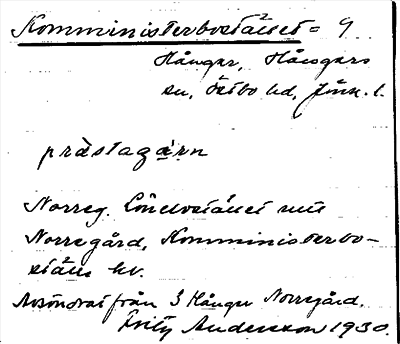 Komministerbostället = 9
Hånger, Hångers
sn, Östbo hd, Jönk. l.
prästagärn
Norreg. Lönebostället uti
Norregård, Komministerbo-
ställe kv.
Avsöndrat från 3 Hånger Norregård.
Fritz Andersson 1930.